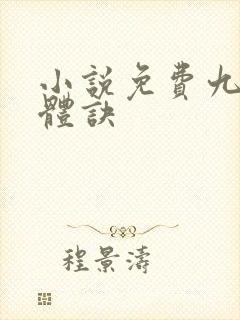 小說免費九
體訣
程景濤